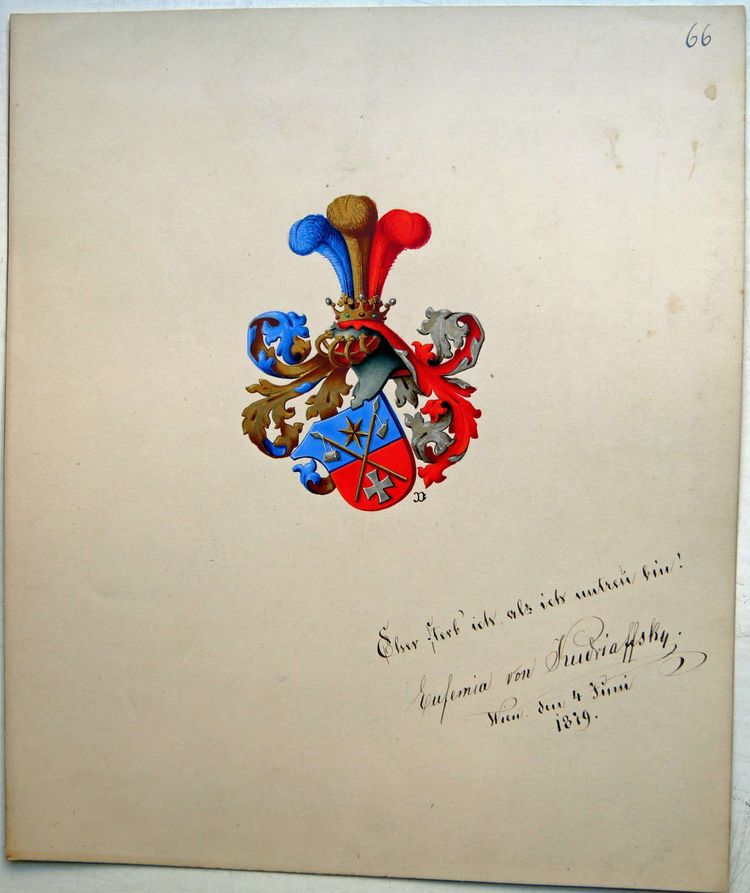 66
Eher sterb' ich, als ich untreu bin!
Eufemia von Kudriaffsky.
Wien, den 4 Juni
1879.